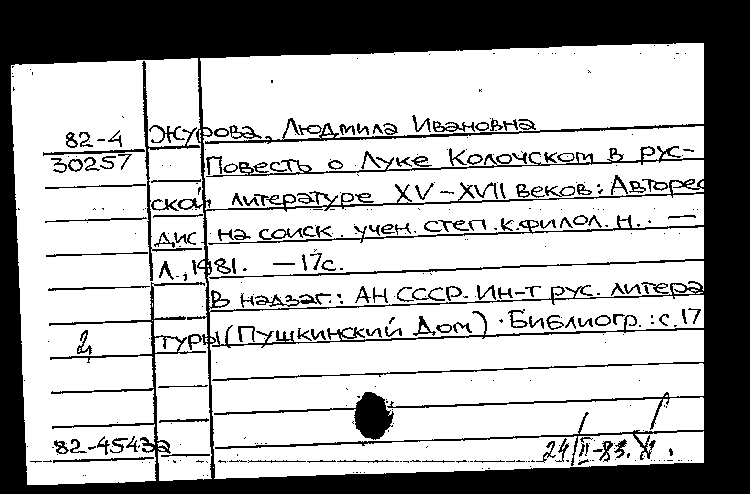 82-4 Журова, Людмила Ивановна
30257 Повесть о Луке Колочском в рус-
ской литературе XV-XVII веков: Авторе
дис. на соиск. учен. степ. к.филол.н. . —
Л., 1981. — 17с.
В надзаг.: АН СССР. Ин-т рус. литера
2 туры (Пушкинский Дом) . Библиогр.: с.17
82-4543а
24/II-83.